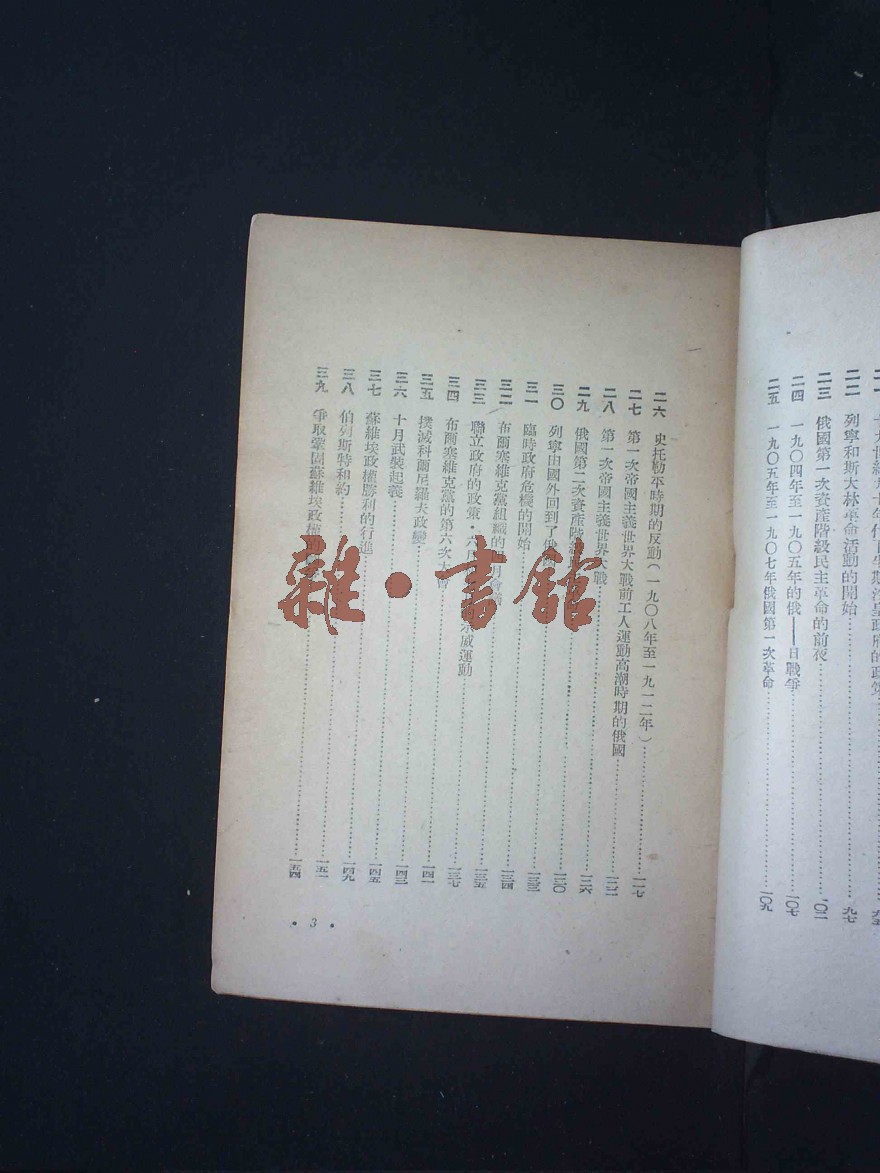 二二 列寧和斯大林革命活動的開始……九七
二三 俄國第一次資產階級民主革命的前夜……一〇二
二四 一九〇四年至一九〇五年的俄——日戰爭……一〇七
二五 一九〇五年至一九〇七年俄國第一次革命……一〇九
二六 史托勒平時期的反動(一九〇八年至一九一二年)……一一七
二七 第一次帝國主義世界大戰前工人運動高潮時期的俄國……一二二
二八 第一次帝國主義世界大戰……一二六
二九 俄國第二次資產階級……一三〇
三〇 列寧由國外回到了俄……一三三
三一 臨時政府危機的開始……一三四
三二 布爾塞維克黨組織的……一三五
三三 聯立政府的政策·六月 威運動……一三七
三四 布爾塞維克黨的第六次大會……一四一
三五 撲滅科爾尼羅夫政變……一四三
三六 十月武裝起義……一四五
三七 蘇維埃政權勝利的行進……一四九
三八 伯列斯特和約……一五一
三九 爭取鞏固蘇維埃政權的……一五四
• 3 •
雜·書館